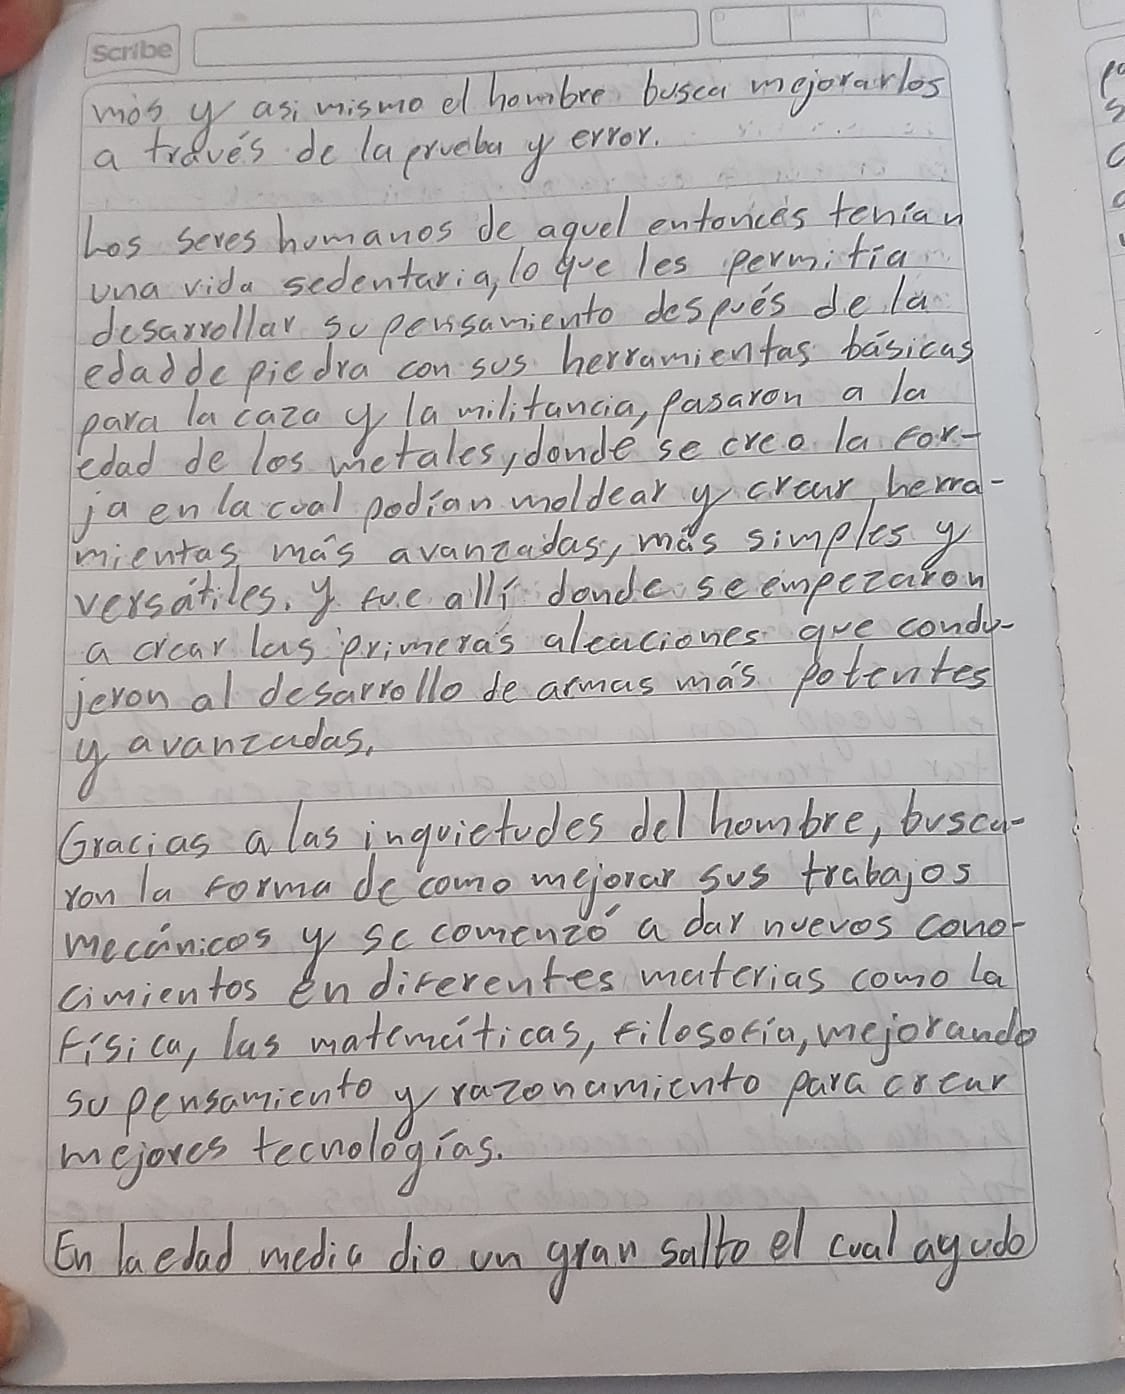 Scribe
mos y asi mismo el hombre busca mejorarlos
a través de la prueba y error.
Los seres humanos de aquel entonces tenían
una vida sedentaria, lo que les permitía
desarrollar su pensamiento después de la
edad de piedra con sus herramientas básicas
para la caza y la militancia, pasaron a la
edad de los metales, donde se creo la for-
ja en la cual podían moldear y crear herra-
mientas más avanzadas, más simples y
versátiles. y fue allí donde se empezaron
a crear las primeras aleaciones que condu-
jeron al desarrollo de armas más potentes
y avanzadas.
Gracias a las inquietudes del hombre, busca-
ron la forma de como mejorar sus trabajos
mecánicos y se comenzó a dar nuevos cono-
cimientos en diferentes materias como la
física, las matemáticas, filosofía, mejorando
su pensamiento y razonamiento para crear
mejores tecnologías.
En la edad media dio un gran salto el cual ayudo